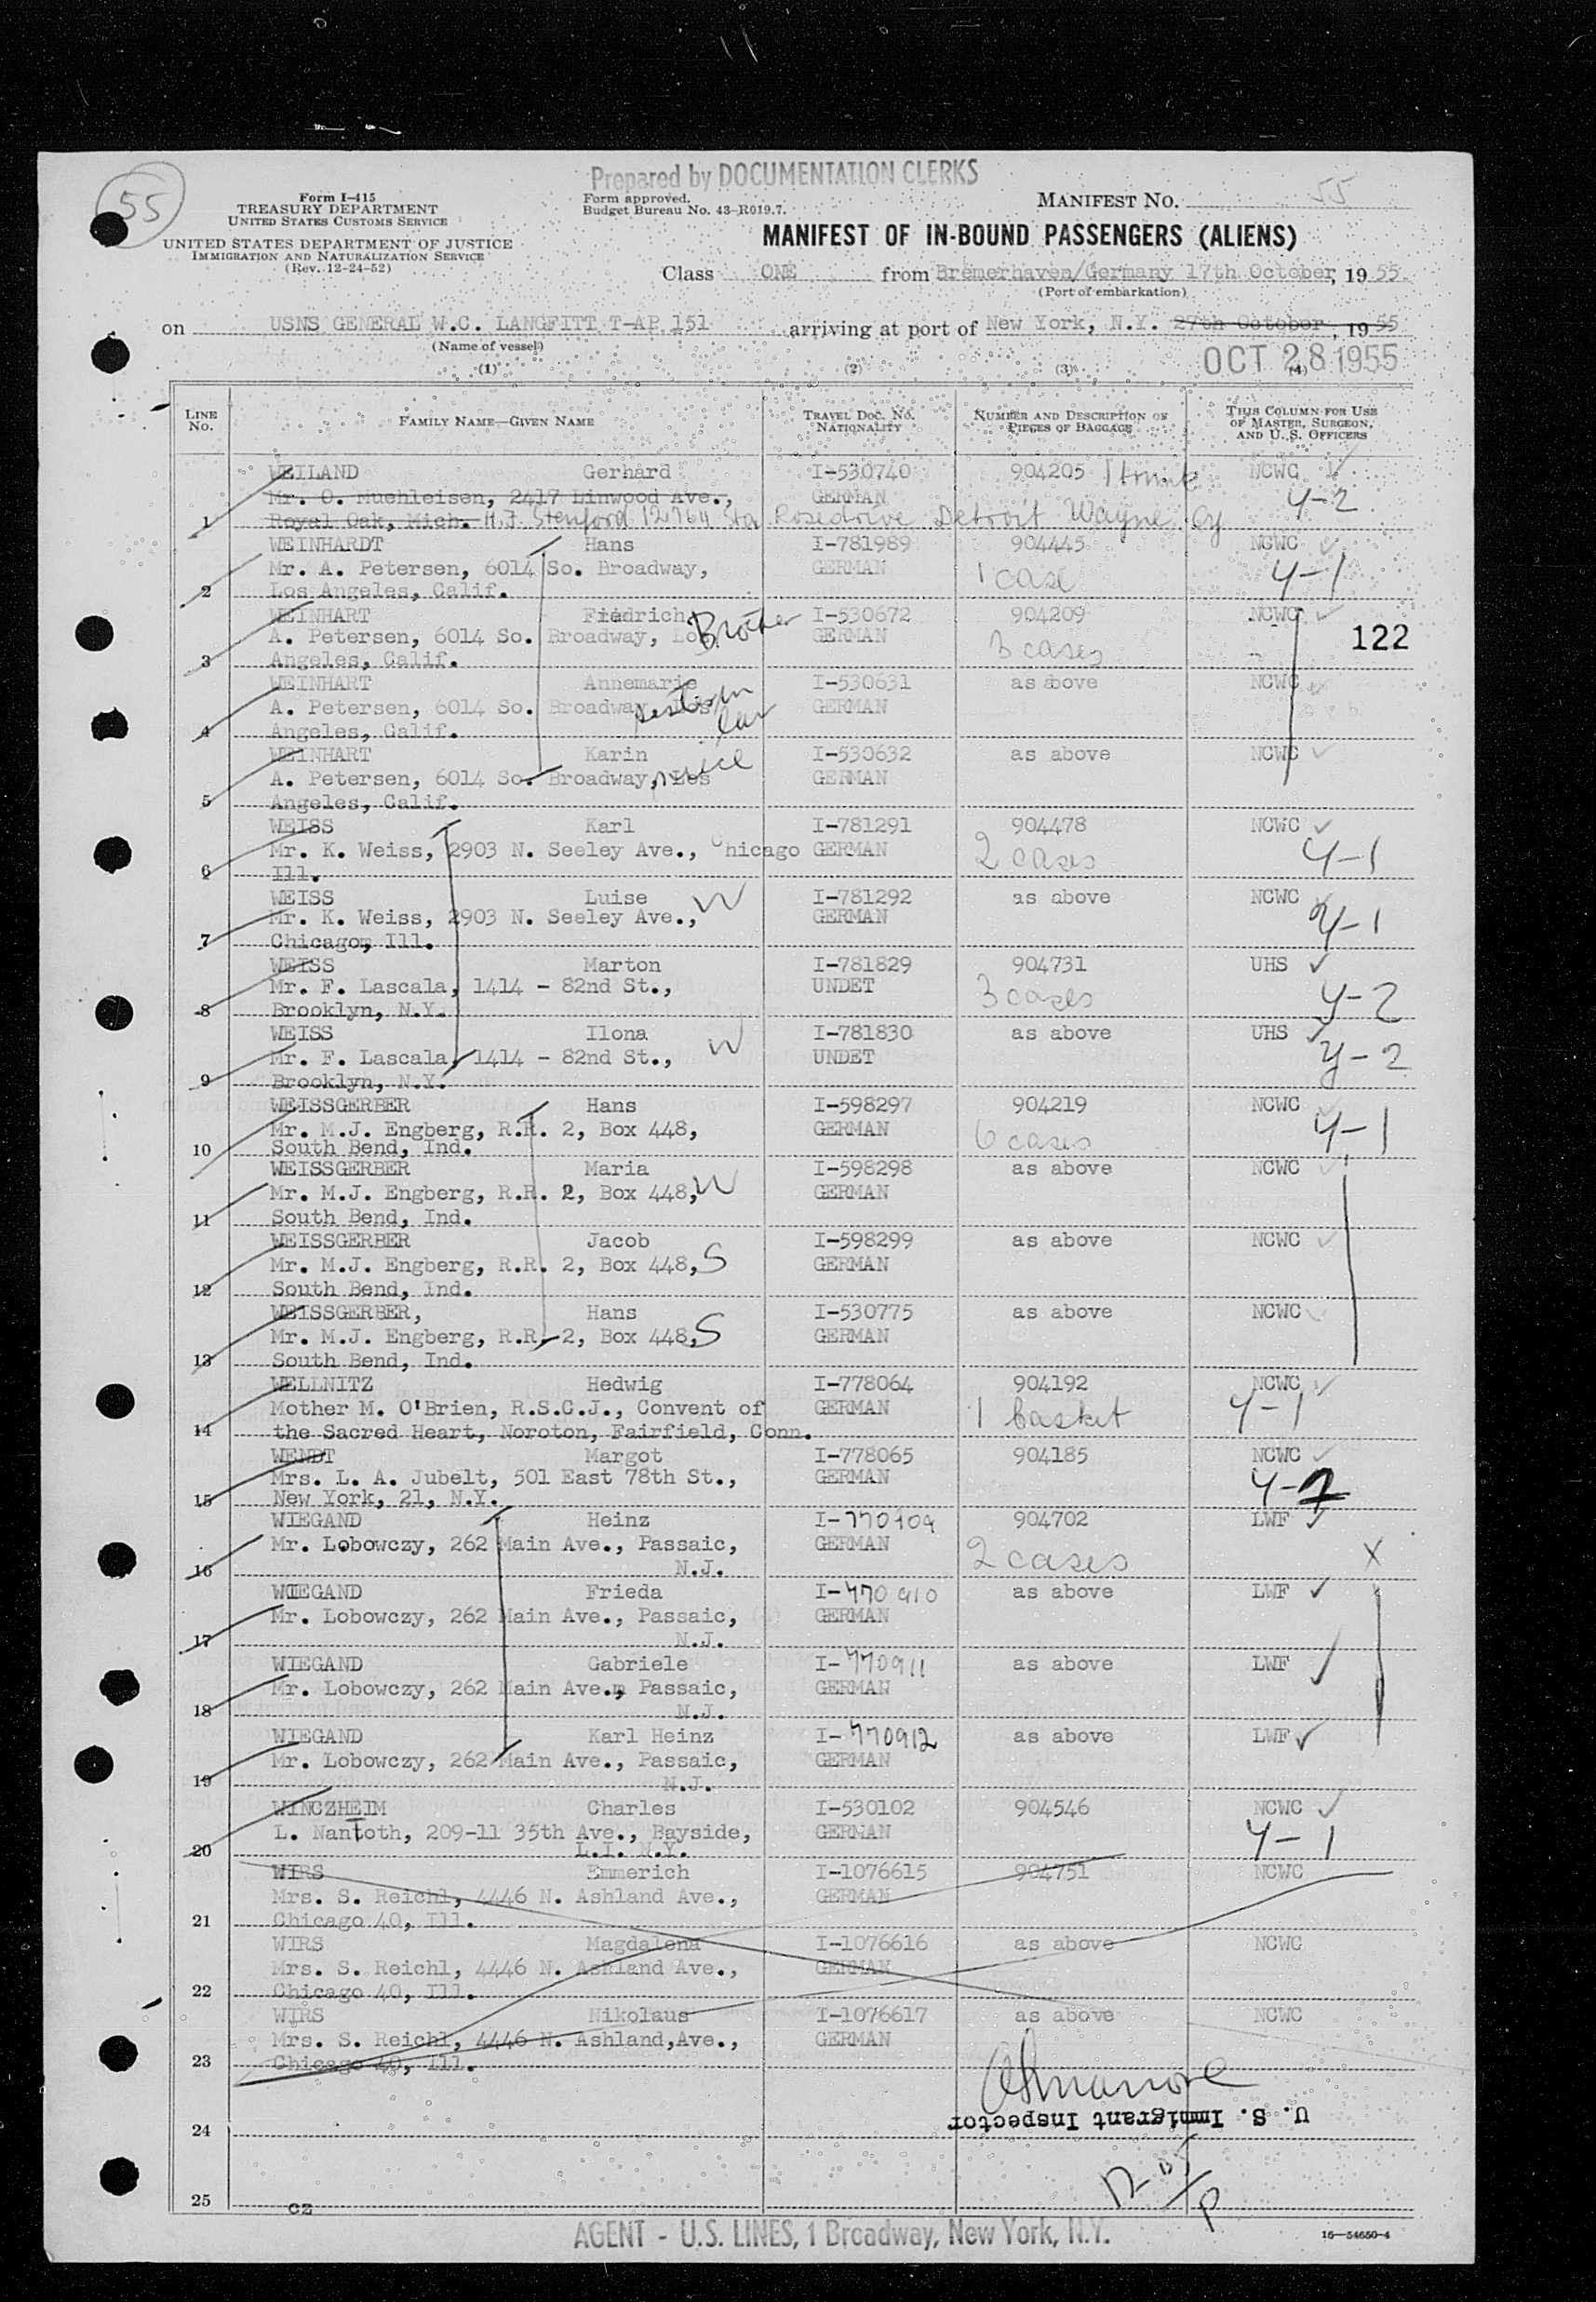 55
Prepared by DOCUMENTATION CLERKS
Form I-415
TREASURY DEPARTMENT
UNITED STATES CUSTOMS SERVICE
UNITED STATES DEPARTMENT OF JUSTICE
IMMIGRATION AND NATURALIZATION SERVICE
(Rev. 12-24-52)
Form approved.
Budget Bureau No. 43-R019.7.
MANIFEST NO. 55
MANIFEST OF IN-BOUND PASSENGERS (ALIENS)
Class ONE from Bremerhaven/Germany 17th October, 1955.
(Port of embarkation)
on USNS GENERAL W.C. LANGFITT T-AP 151 arriving at port of New York, N.Y. 27th October, 1955
(Name of vessel)
OCT 28 1955
(1) (2) (3) (4)
LINE NO. FAMILY NAME—GIVEN NAME TRAVEL DOC. NO. NATIONALITY NUMBER AND DESCRIPTION OF PIECES OF BAGGAGE THIS COLUMN FOR USE OF MASTER, SURGEON, AND U. S. OFFICERS
WEILAND Gerhard I-530740 904205 1 trunk NCWC
Mr. O. Muehleisen, 2417 Linwood Ave., GERMAN 4-2
1 Royal Oak, Mich. H.J. Stenford 12764 Sta Rosedrive Detroit Wayne Cy
WEINHARDT Hans I-781989 904445 NCWC
Mr. A. Petersen, 6014 So. Broadway, GERMAN 1 case 4-1
2 Los Angeles, Calif.
WEINHART Fiedrich Brother I-530672 904209 NCWC
A. Petersen, 6014 So. Broadway, Los GERMAN 3 cases 122
3 Angeles, Calif.
WEINHART Annemarie I-530631 as above NCWC
A. Petersen, 6014 So. Broadway, Los sister in law GERMAN
4 Angeles, Calif.
WEINHART Karin I-530632 as above NCWC
A. Petersen, 6014 So. Broadway, Los niece GERMAN
5 Angeles, Calif.
WEISS Karl I-781291 904478 NCWC
Mr. K. Weiss, 2903 N. Seeley Ave., Chicago GERMAN 2 cases 4-1
6 Ill.
WEISS Luise W I-781292 as above NCWC
Mr. K. Weiss, 2903 N. Seeley Ave., GERMAN 4-1
7 Chicago, Ill.
WEISS Marton I-781829 904731 UHS
Mr. F. Lascala, 1414 - 82nd St., UNDET 3 cases 4-2
8 Brooklyn, N.Y.
WEISS Ilona W I-781830 as above UHS
Mr. F. Lascala, 1414 - 82nd St., UNDET 4-2
9 Brooklyn, N.Y.
WEISSGERBER Hans I-598297 904219 NCWC
Mr. M.J. Engberg, R.R. 2, Box 448, GERMAN 6 cases 4-1
10 South Bend, Ind.
WEISSGERBER Maria I-598298 as above NCWC
Mr. M.J. Engberg, R.R. 2, Box 448, W GERMAN
11 South Bend, Ind.
WEISSGERBER Jacob I-598299 as above NCWC
Mr. M.J. Engberg, R.R. 2, Box 448, S GERMAN
12 South Bend, Ind.
WEISSGERBER, Hans I-530775 as above NCWC
Mr. M.J. Engberg, R.R. 2, Box 448, S GERMAN
13 South Bend, Ind.
WELLNITZ Hedwig I-778064 904192 NCWC
Mother M. O'Brien, R.S.C.J., Convent of GERMAN 1 basket 4-1
14 the Sacred Heart, Noroton, Fairfield, Conn.
WENDT Margot I-778065 904185 NCWC
Mrs. L. A. Jubelt, 501 East 78th St., GERMAN 4-
15 New York, 21, N.Y.
WIEGAND Heinz I-770909 904702 LWF
Mr. Lobowczy, 262 Main Ave., Passaic, GERMAN 2 cases X
16 N.J.
WIEGAND Frieda I-770910 as above LWF
Mr. Lobowczy, 262 Main Ave., Passaic, GERMAN
17 N.J.
WIEGAND Gabriele I-770911 as above LWF
Mr. Lobowczy, 262 Main Ave., Passaic, GERMAN
18 N.J.
WIEGAND Karl Heinz I-770912 as above LWF
Mr. Lobowczy, 262 Main Ave., Passaic, GERMAN
19 N.J.
WINCZHEIM Charles I-530102 904546 NCWC
L. Nantoth, 209-11 35th Ave., Bayside, GERMAN 4-1
20 L.I. N.Y.
WIRS Emmerich I-1076615 904751 NCWC
Mrs. S. Reichl, 4446 N. Ashland Ave., GERMAN
21 Chicago 40, Ill.
WIRS Magdalena I-1076616 as above NCWC
Mrs. S. Reichl, 4446 N. Ashland Ave., GERMAN
22 Chicago 40, Ill.
WIRS Nikolaus I-1076617 as above NCWC
Mrs. S. Reichl, 4446 N. Ashland,Ave., GERMAN
23 Chicago 40, Ill.
U. S. Immigrant Inspector
24
25 CZ
AGENT - U.S. LINES, 1 Broadway, New York, N.Y.
16—54650-4